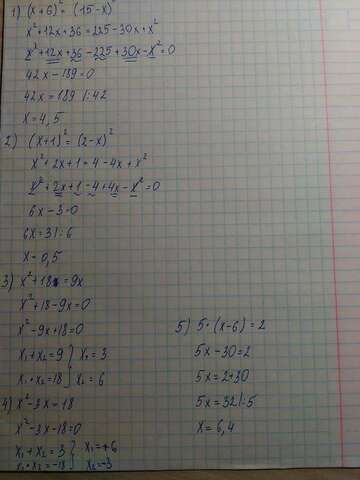 1) (x+6)² = (15-x)²
x²+12x+36=225-30x+x²
x²+12x+36-225+30x-x²=0
42x-189=0
42x=189 |:42
x=4,5
2) (x+1)²=(2-x)²
x²+2x+1=4-4x+x²
x²+2x+1-4+4x-x²=0
6x-3=0
6x=3|:6
x=0,5
3) x²+18=9x
x²+18-9x=0
x²-9x+18=0
x₁+x₂=9 } x₁=3
x₁·x₂=18 } x₂=6
4) x²-3x=18
x²-3x-18=0
x₁+x₂=3 } x₁=6
x₁·x₂=-18 } x₂=-3
5) 5·(x-6)=2
5x-30=2
5x=2+30
5x=32|:5
x=6,4